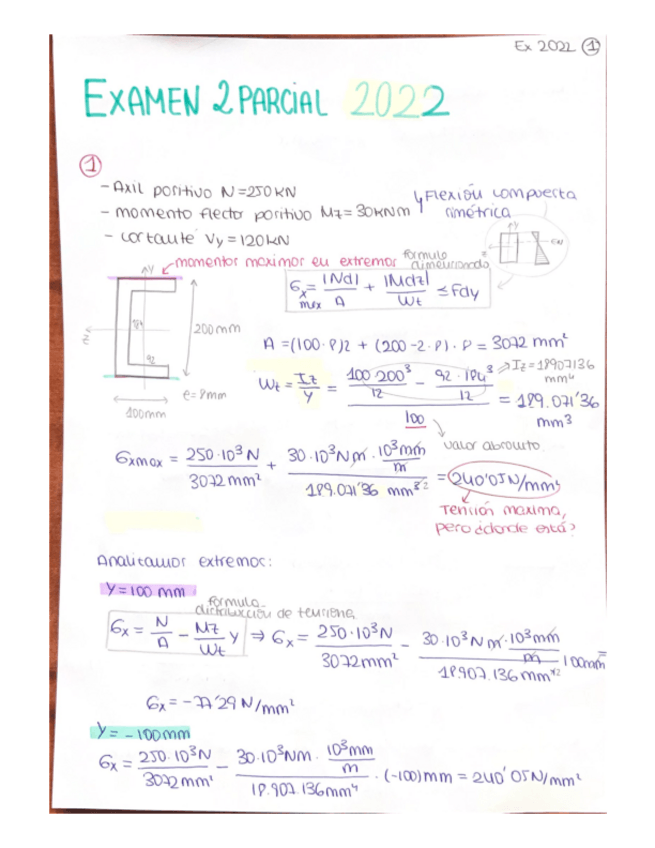 Ex 2022 1
EXAMEN 2 PARCIAL 2022
1
- Axil positivo N = 250 kN
- momento flector positivo Mz = 30 kNm
- cortante Vy = 120 kN
Flexión compuesta
simétrica
momentos maximos en extremos
formula
dimensionado
σx max = |Nd|/A + |Mdz|/Wt ≤ Fdy
y
200 mm
184
92
z
e = 8mm
100mm
A = (100 · 8)2 + (200 - 2 · 8) · 8 = 3072 mm²
Wt = Iz/y = (100·200³/12 - 92 · 184³/12)/100 = 189.071'36 mm³
Iz = 18907136 mm⁴
valor absoluto
σxmax = 250·10³N/3072 mm² + (30·10³Nm · 10³mm/m)/189.071'36 mm³ = 240'05 N/mm²
Tensión maxima,
pero ¿donde está?
Analizamos extremos:
y = 100 mm
formula
distribución de tensione
σx = N/A - Mz/Wt y ⇒ σx = 250·10³N/3072mm² - (30·10³Nm · 10³mm/m)/18.907.136mm⁴ 100mm =
σx = -77'29 N/mm²
y = -100mm
σx = 250·10³N/3072mm² - (30·10³Nm · 10³mm/m)/18.907.136mm⁴ · (-100)mm = 240'05 N/mm²